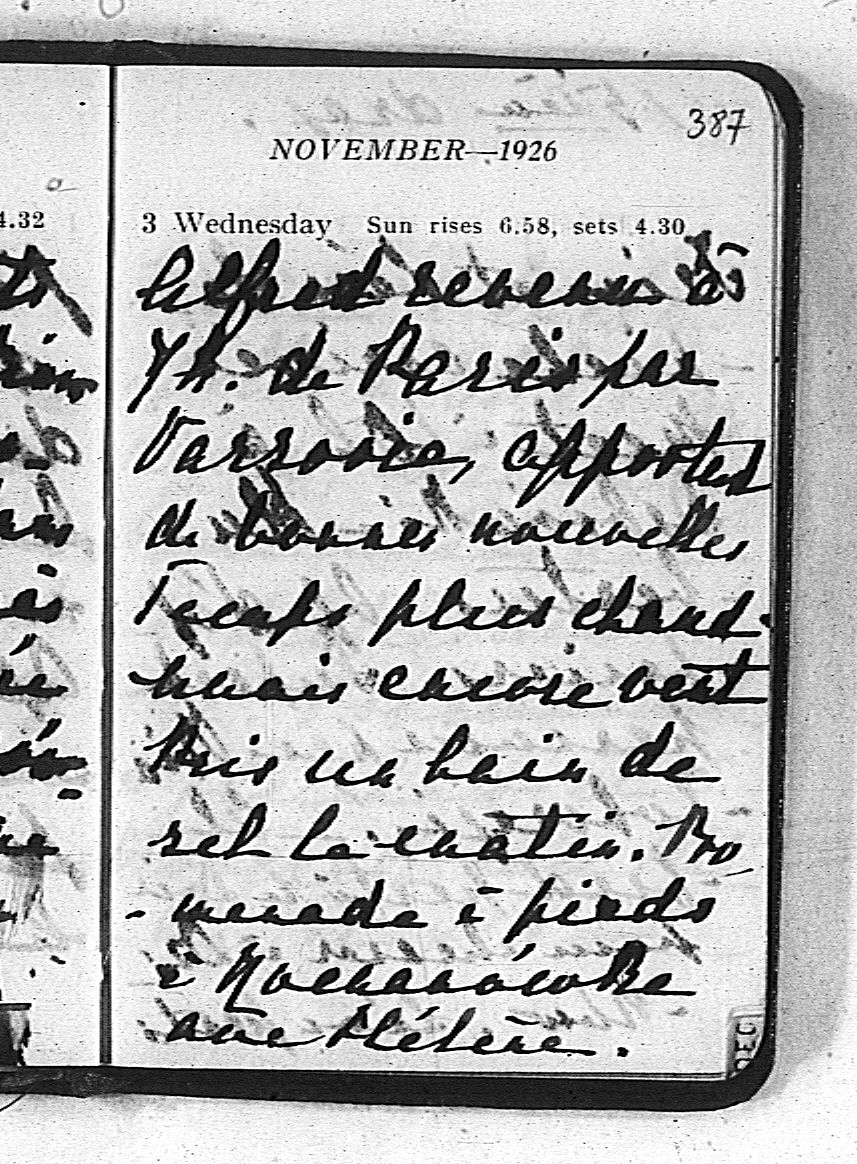 387
NOVEMBER—1926
4.32
3 Wednesday Sun rises 6.58, sets 4.30
Alfred revenu à
7 h. de Paris par
Varsovie, apported
de bonnes nouvelles
Temps plus chaud
mais encore vent
Pris un bain de
sel le matin. Pro
- menade à pieds
à Kochanówka
avec Hélène.
DEC